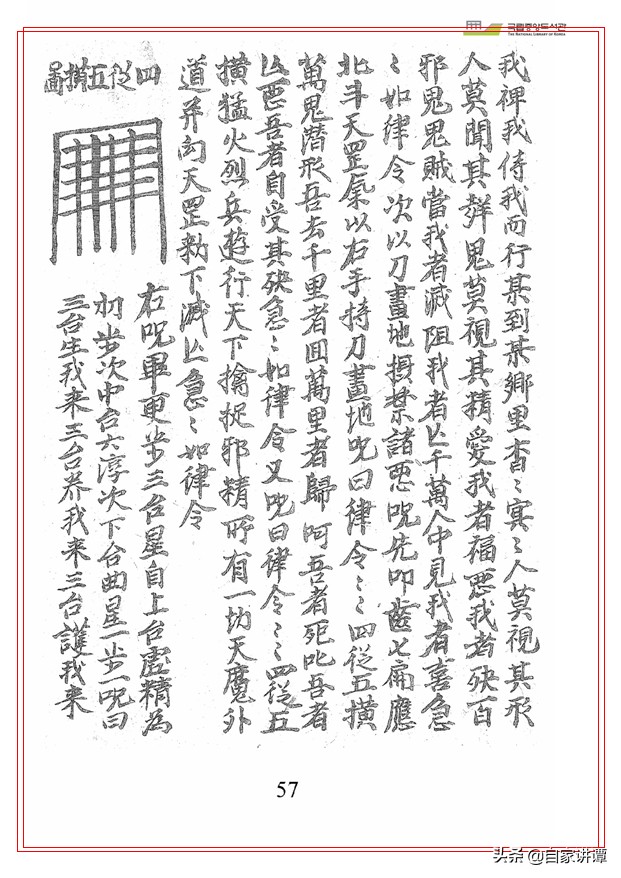 국립중앙도서관
THE NATIONAL LIBRARY OF KOREA
我禆我侍我而行某到某鄉里杳〻冥〻人莫視其形
人莫聞其聲鬼莫視其精愛我者福惡我者殃百
邪鬼鬼賊當我者滅阻我者亾千萬人中見我者喜急
〻如律令次以刀畫地摄禁諸惡呪先叩齒七扁應
北斗天罡氣以右手持刀畫地呪曰律令〻〻四從五横
萬鬼潜形吾去千里者囬萬里者歸呵吾者死叱吾者
亾惡吾者自受其殃急〻如律令又呪曰律令〻〻四從五
横猛火烈兵遊行天下擒捉邪精所有一切天魔外
道并勾天罡勑下滅亾急〻如律令
四從五横圖
右呪畢更步三台星自上台虚精為
初步次中台六淳次下台曲星一步一呪曰
三台生我来三台养我来三台護我来
57
头条 @自家讲谭